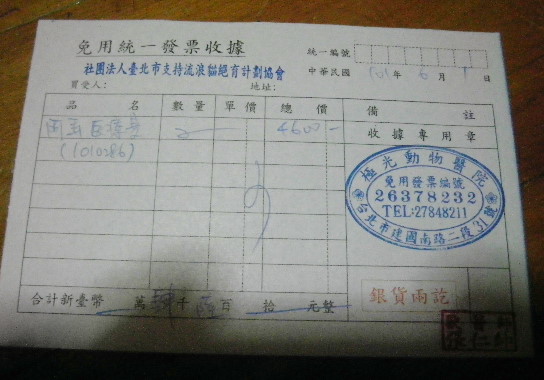 免用統一發票收據
統一編號
社團法人臺北市支持流浪貓絕育計劃協會
中華民國 101 年 6 月 1 日
買受人： 地址：
品名 數量 單價 總價 備註
2 4600-
收據專用章
(1010286)
極光動物醫院
免用發票編號
26378232
TEL:27848211
台北市建國南路二段31號
銀貨兩訖
合計新臺幣 萬 肆 千 陸 百 拾 元整
獸醫師
張仁